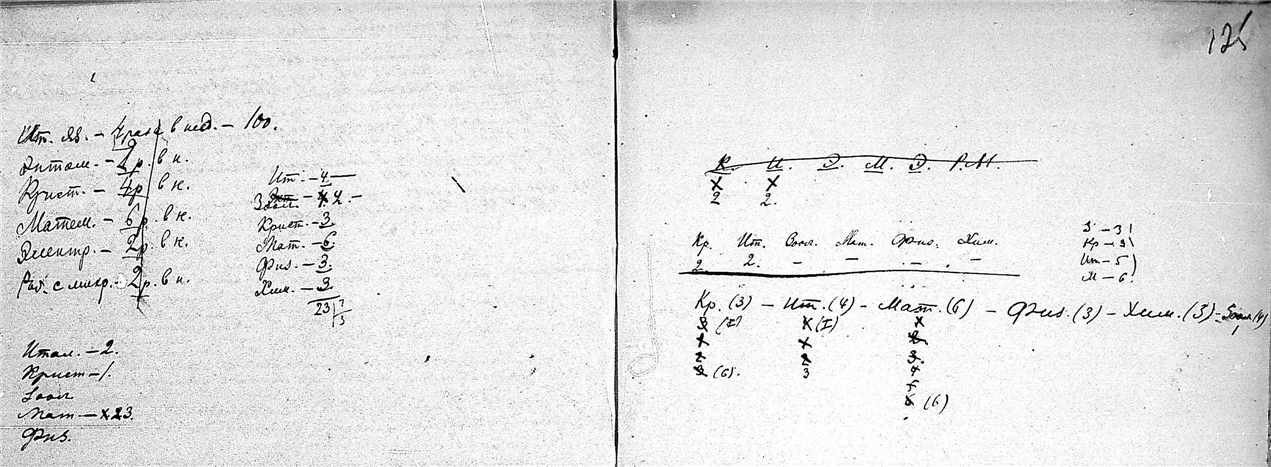 Ит. яз. – 4 раза в нед. – 100.
Энтом. – 2 р. в н.
Крист. – 4 р. в н.
Матем. – 6 р. в н.
Электр. – 2 р. в н.
Раб. с микр. – 2 р. в н.
Ит. – 4 –
Зоол. – 2. –
Крист. – 3
Мат. – 6.
Физ. – 3.
Хим. – 3
23
Итал. – 2.
Крист – 1.
Зоол
Мат – 23.
Физ.
125
К. И. Э. М. Э. Р.М.
2 2.
Кр. Ит. Зоол. Мат. Физ. Хим.
2. 2. – – – –
З – 3
Кр – 3
Ит – 5
М – 6.
Кр. (3) – Ит. (4) – Мат. (6) – Физ. (3) – Хим. (3) – Зоол. (4)
3 (I) (I)
2 2 3.
3 (6). 3 4
(6)